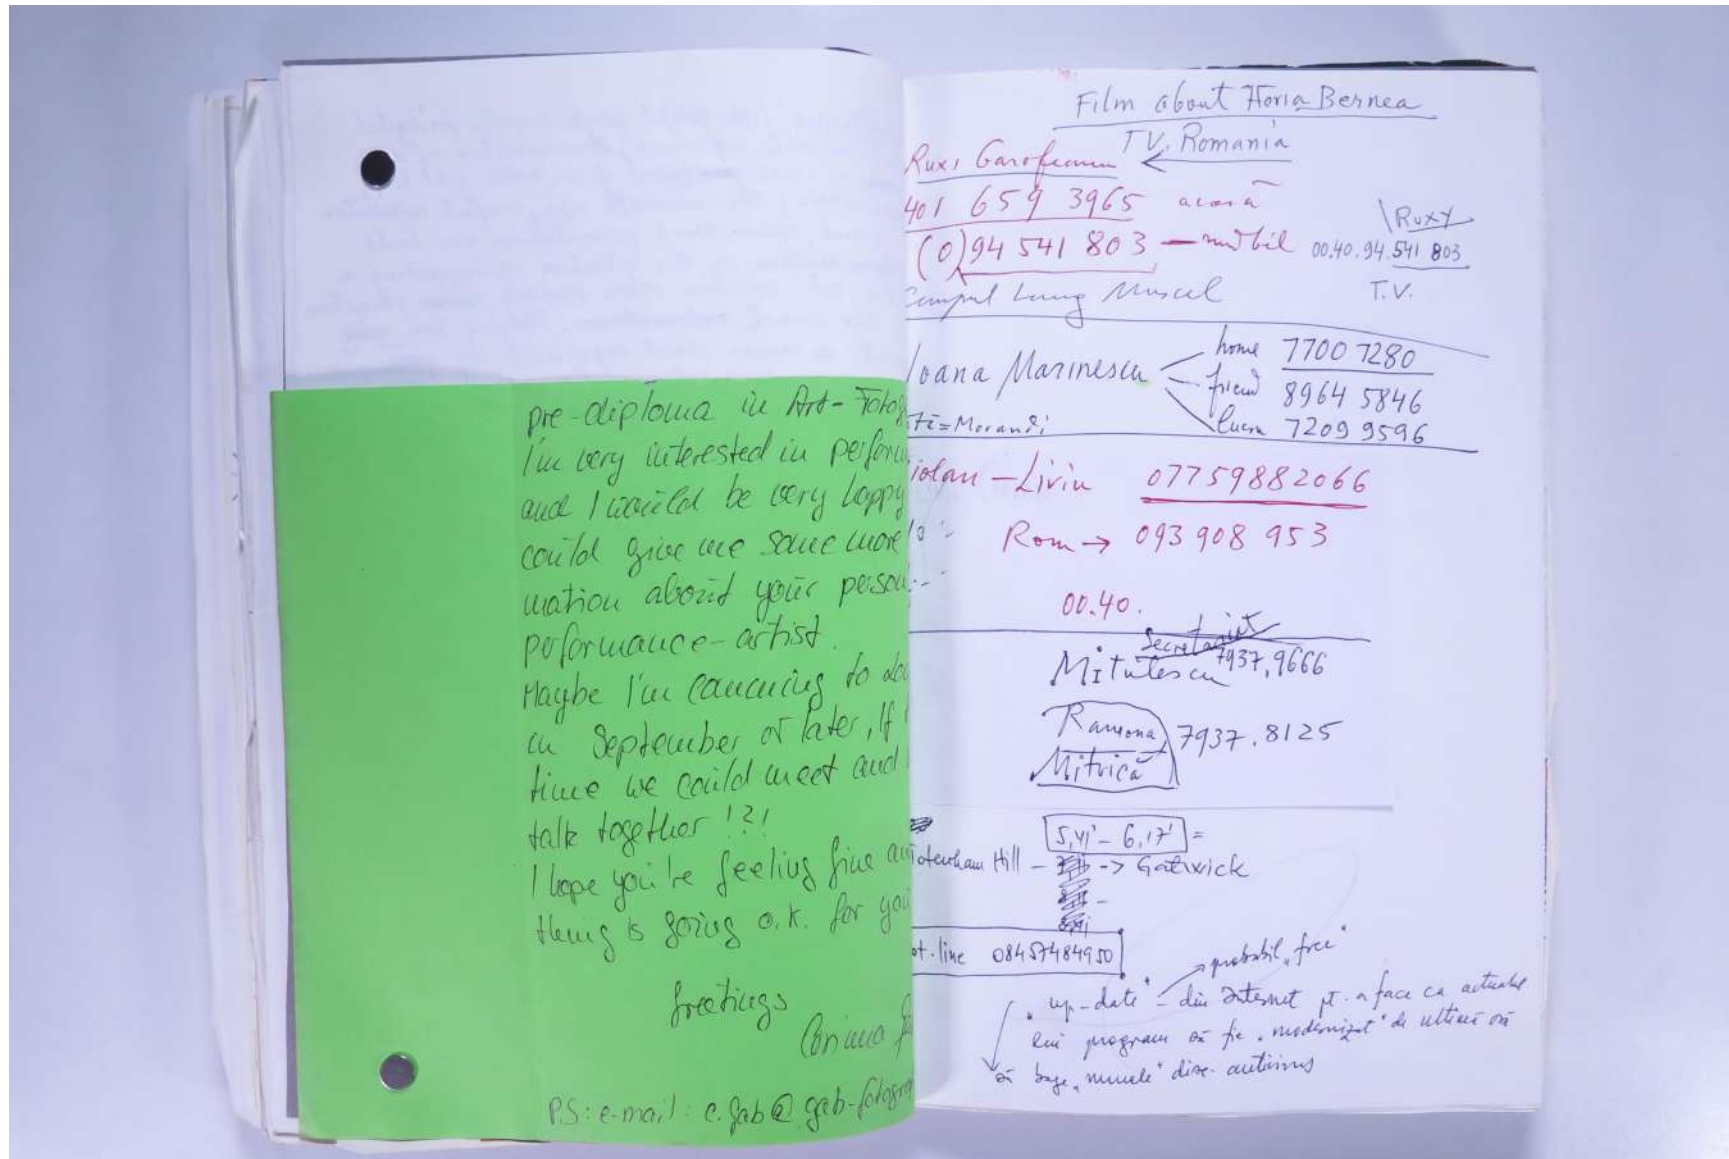 pre-diploma in Art-Fotog
I'm very interested in perform
and I would be very happy
could give me some more
mation about your person
performance-artist.
Maybe I'm comming to Lo
in September or later, If
time we could meet and
talk together !?!
I hope you're feeling fine an
thing is going o.k. for you
greetings
Corinna
P.S: e-mail: c.gab@gab-fotogra
Film about Horia Bernea
T.V. Romania
Ruxi Garofeanu
401 659 3965 acasă
(0)94 541 803 — mobil
Ruxy
00.40.94.541 803
T.V.
Campul Lung Muscel
Ioana Marinescu
home 7700 7280
friend 8964 5846
lucru 7209 9596
ti=Morandi
iolan - Liviu 07759882066
Rom → 093 908 953
00.40.
Secretariat
Mitulescu 7937.9666
Ramona 7937.8125
Mitrică
5,41' - 6,17' =
Hill - → Gatwick
ot.line 08457484950
probabil „free"
„up-date" - din Internet pt. a face ca actualul
lui program să fie „modernizat" de ultimă oră
să bage „numele"